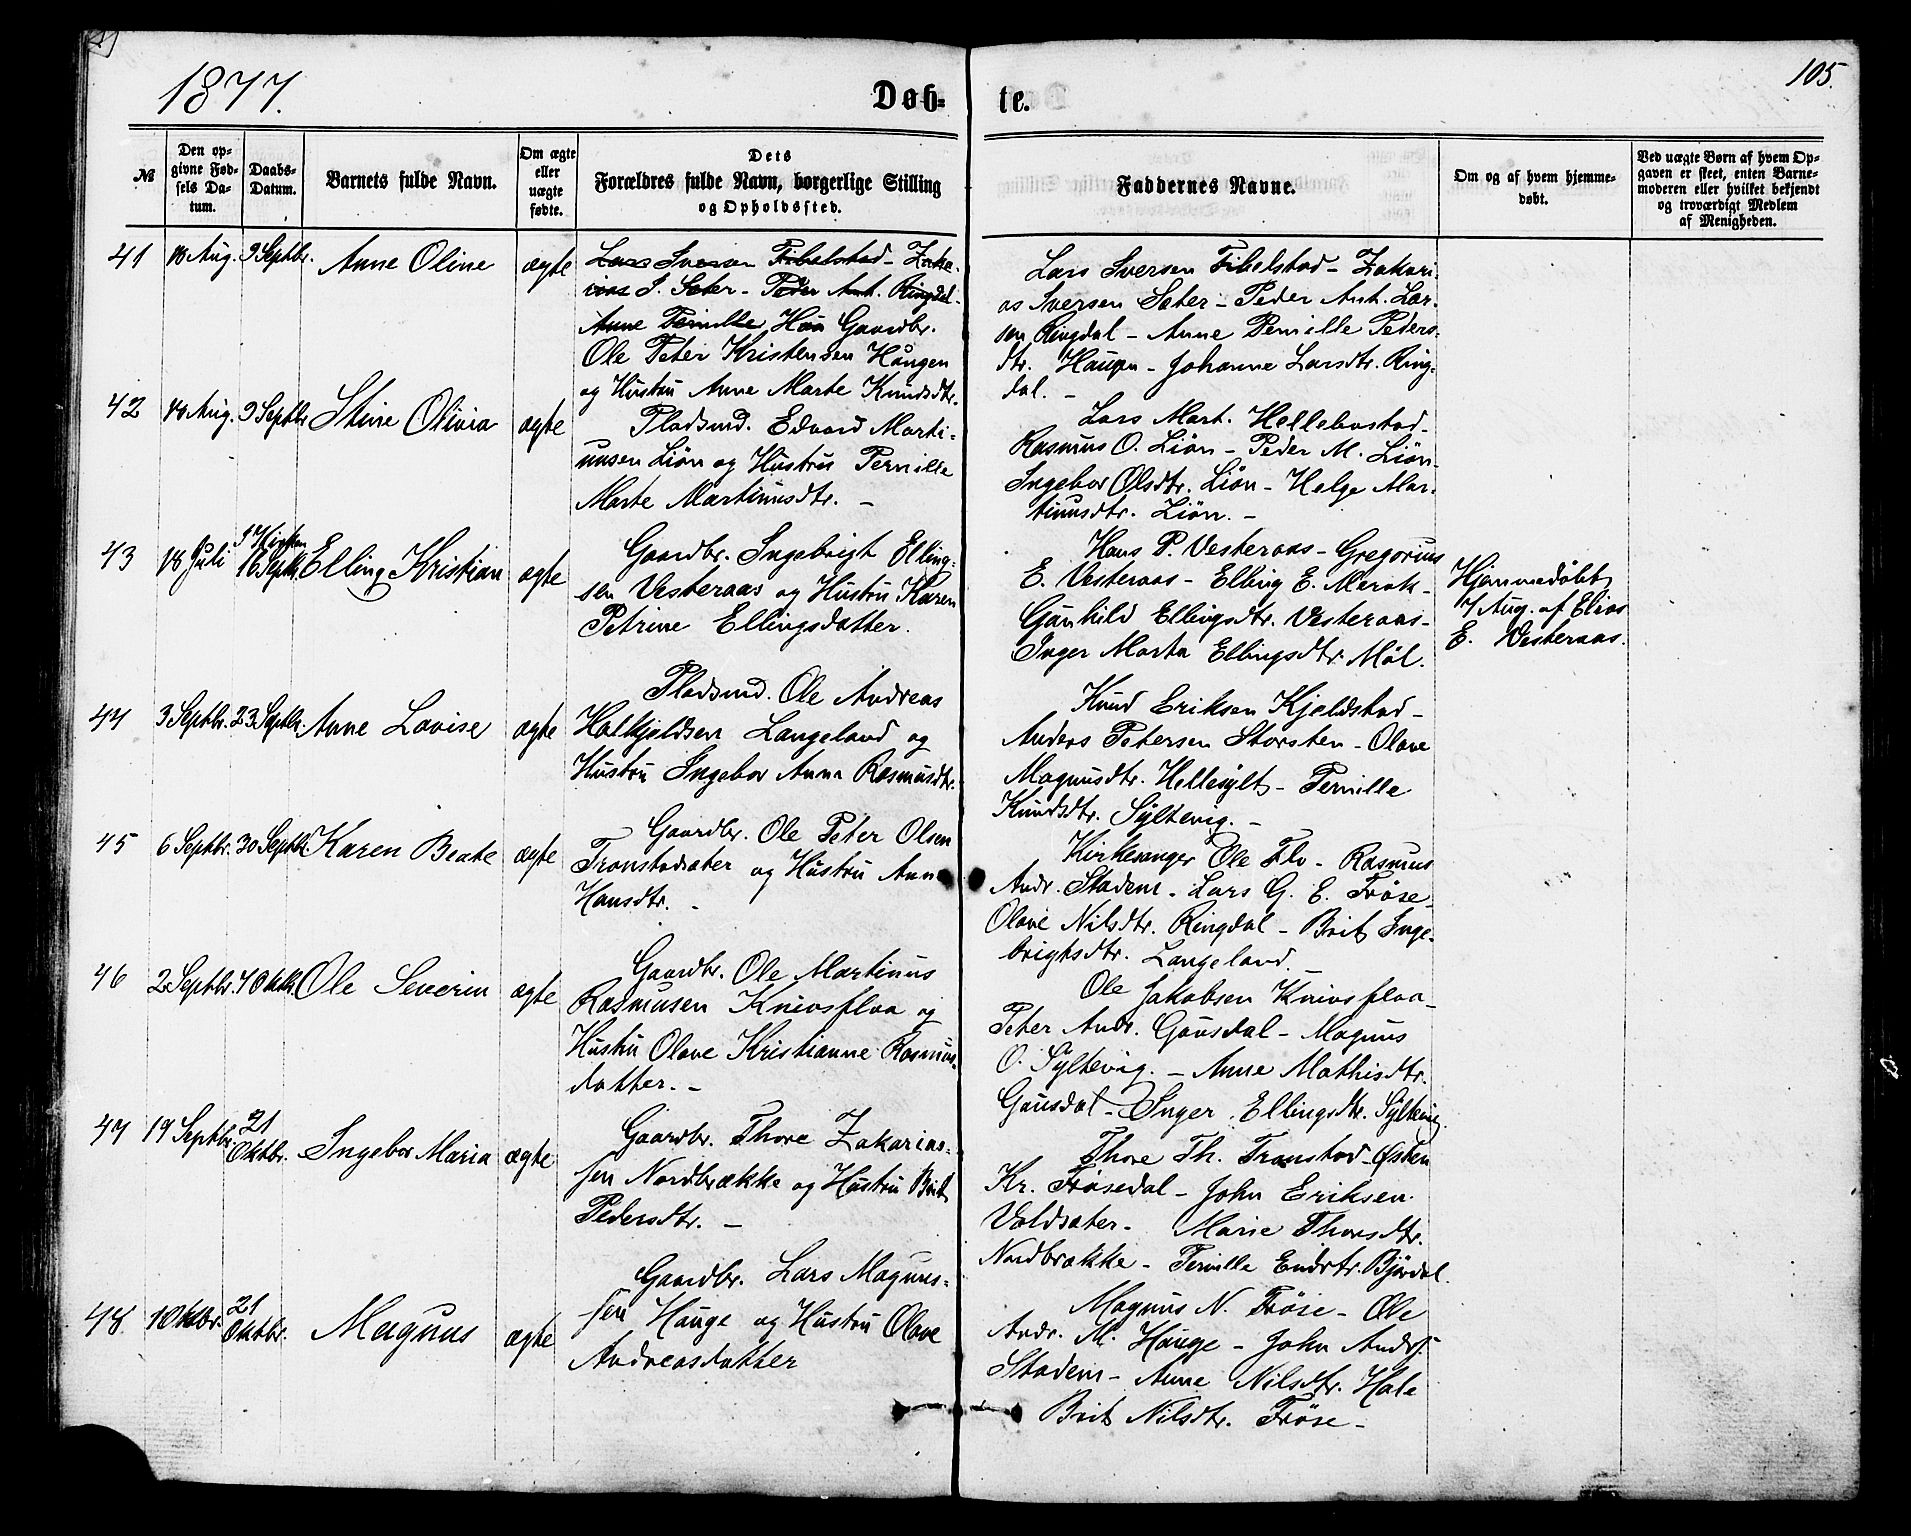 1877.
Døb-
te.
105.
№
Den op-
givne Fød-
sels Da-
tum.
Daabs-
Datum.
Barnets fulde Navn.
Om ægte
eller
uægte
fødte.
Dets
Forældres fulde Navn, borgerlige Stilling
og Opholdssted.
Faddernes Navne.
Om og af hvem hjemme-
døbt.
Ved uægte Børn af hvem Op-
gaven er skeet, enten Barne-
moderen eller hvilket bekjendt
og troværdigt Medlem
af Menigheden.
41 18 Aug. 9 Septbr. Anne Oline ægte
Lars Iversen Fibelstad - Zaka-
rias I. Sæter - Peder Ant. Ringdal -
Anne Pernille Hau Gaardbr.
Ole Peter Kristensen Haugen
og Hustru Anne Marte Knudsdtr.
Lars Iversen Fibelstad - Zakari-
as Iversen Sæter - Peder Ant. Lar-
sen Ringdal - Anne Pernille Peders-
dtr. Haugen - Johanne Larsdtr. Ring-
dal. -
42 18 Aug. 9 Septbr Stine Olivia ægte
Pladsmd. Edvard Marti-
nusen Liøn og Hustru Pernille
Marte Martinusdtr. -
Lars Mart. Hellebostad -
Rasmus O. Liøn - Peder M. Liøn -
Ingebor Olsdtr. Liøn - Helge Mar-
tinusdtr. Liøn. -
43 18 Juli i Kirken 16 Septbr. Elling Kristian ægte
Gaardbr. Ingebrigt Elling-
sen Vesteraas og Hustru Karen
Petrine Ellingsdatter.
Hans P. Vesteraas - Gregorius
E. Vesteraas - Elling E. Merok -
Gunhild Ellingsdtr. Vesteraas -
Inger Marta Ellingsdtr. Møl.
Hjemmedøbt
7 Aug. af Elias
E. Vesteraas.
44 3 Septbr. 23 Septbr. Anne Lovise ægte
Pladsmd. Ole Andreas
Halkjeldsen Langeland og
Hustru Ingebor Anna Rasmusdtr.
Knud Eriksen Kjeldstad -
Anders Petersen Storsten - Olave
Magnusdtr. Hellesylt - Pernille
Knudsdtr. Syltevig. -
45 6 Septbr. 30 Septbr. Karen Beate ægte
Gaardbr. Ole Peter Olsen
Tronstadsæter og Hustru Anne
Hansdtr. -
Kirkesanger Ole Flo - Rasmus
Andr. Stadem - Lars G. E. Frøse -
Olave Nilsdtr. Ringdal - Brit Inge-
brigtsdtr. Langeland. -
46 2 Septbr. 7 Oktb. Ole Severin ægte
Gaardbr. Ole Martinus
Rasmusen Knivsflaa og
Hustru Olave Kristianne Rasmus-
datter. -
Ole Jakobsen Knivsflaa -
Peter Andr. Gausdal - Magnus
O. Syltevig. - Anne Mathisdtr.
Gausdal - Inger Ellingsdtr. Syltevig.
47 19 Septbr. 21 Oktbr. Ingebor Maria ægte
Gaardbr. Thore Zakarias-
sen Nordbrække og Hustru Brit
Pedersdtr. -
Thore Th. Tronstad - Østen
Kr. Frøsedal - John Eriksen
Voldsæter - Marie Thorsdtr.
Nordbrække - Pernille Endrtr. Bjørdal.
48 1 Oktbr. 21 Oktbr. Magnus ægte
Gaardbr. Lars Magnus-
sen Hauge og Hustru Olave
Andreasdatter
Magnus N. Frøse - Ole
Andr. M. Hauge - John Andr.
Stadem - Anne Nilsdtr. Hole
Brit Nilsdtr. Frøse -